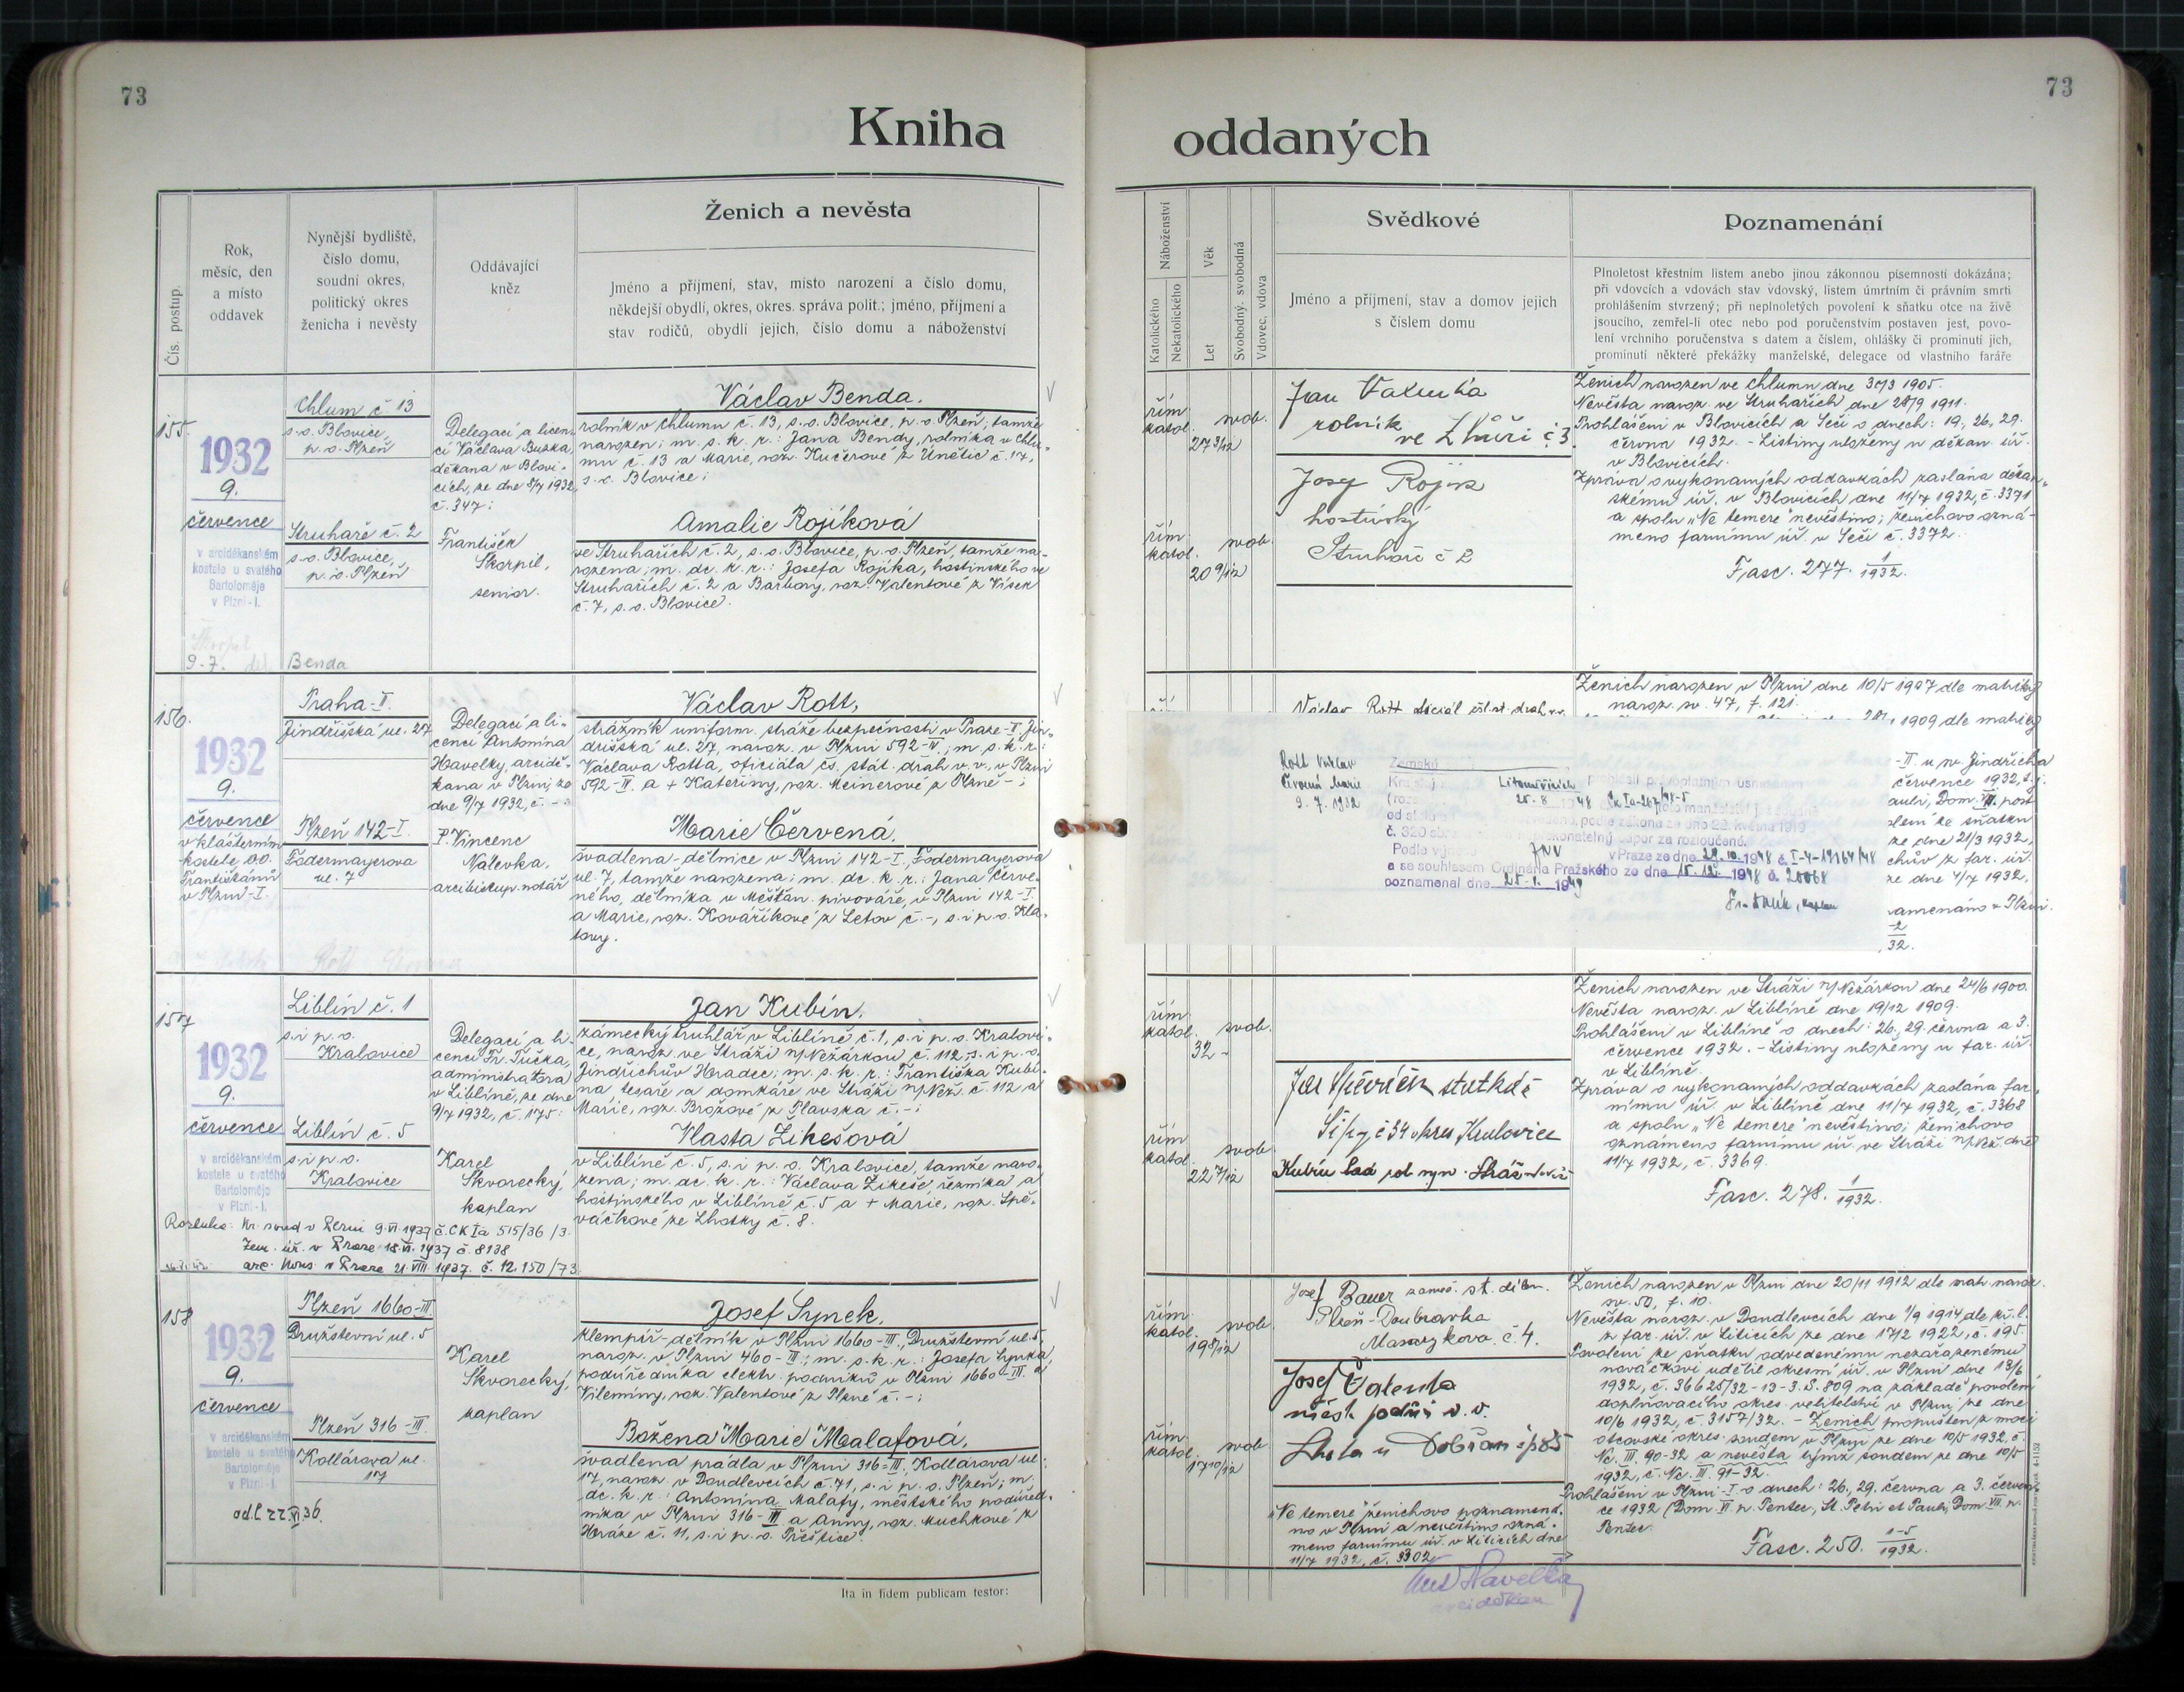 73
73
Kniha
oddaných
Čís. postup.
Rok,
měsíc, den
a místo
oddavek
Nynější bydliště,
číslo domu,
soudní okres,
politický okres
ženicha i nevěsty
Oddávající
kněz
Ženich a nevěsta
Jméno a příjmení, stav, místo narození a číslo domu,
někdejší obydlí, okres, okres. správa polit.; jméno, příjmení a
stav rodičů, obydlí jejich, číslo domu a náboženství
Náboženství
Katolického
Nekatolického
Věk
Let
Svobodný, svobodná
Vdovec, vdova
Svědkové
Jméno a příjmení, stav a domov jejich
s číslem domu
Poznamenání
Plnoletost křestním listem anebo jinou zákonnou písemností dokázána;
při vdovcích a vdovách stav vdovský, listem úmrtním či právním smrti
prohlášením stvrzený; při neplnoletých povolení k sňatku otce na živě
jsoucího, zemřel-li otec nebo pod poručenstvím postaven jest, povo-
lení vrchního poručenstva s datem a číslem, ohlášky či prominutí jich,
prominutí některé překážky manželské, delegace od vlastního faráře
155.
1932
9.
července
v arciděkanském
kostele u svatého
Bartoloměje
v Plzni - I.
9.-7.
Benda
Chlum č 13
s.o. Blovice,
p.o. Plzeň
Struhaře č. 2
s.o. Blovice,
p.o. Plzeň
Delegací a licen-
cí Václava Buška,
děkana v Blovi-
cích, ze dne 8/7 1932,
č. 347:
František
Škorpil,
senior.
Václav Benda.
rolník v Chlumu č. 13, s.o. Blovice, p.o. Plzeň; tamže
narozen; m. s. k. r.: Jana Bendy, rolníka v Chlu-
mu č. 13 a Marie, roz. Kučerové z Únětic č. 17,
s.o. Blovice;
Amalie Rojíková
ve Struhařích č. 2, s.o. Blovice, p.o. Plzeň, tamže na-
rozena; m. dc. k. r.: Josefa Rojíka, hostinského ve
Struhařích č. 2 a Barbory, roz. Valentové z Vísek
č. 7, s.o. Blovice.
řím.
katol.
27 3/12
svob.
řím.
katol.
20 9/12
svob.
Jan Valenta
rolník
ve Zhůři č 3
Josef Rojík
hostinský
Struhaře č 2
Ženich narozen ve Chlumu dne 30/3 1905.
Nevěsta naroz. ve Struhařích dne 28/9 1911.
Prohlášeni v Blovicích a Seči o dnech: 19., 26., 29.
června 1932. - Listiny uloženy u děkan. úř.
v Blovicích.
Zpráva o vykonaných oddavkách zaslána děkan-
skému úř. v Blovicích dne 11/7 1932, č. 3371
a spolu "Ne temere" nevěstino; ženichovo ozná-
meno farnímu úř. v Seči č. 3372.
Fasc. 277. 1/1932.
156.
1932
9.
července
v klášterním
kostele oo.
Františkánů
v Plzni-I.
Praha-II.
Jindřišská ul. 27
Plzeň 142-I.
Födermayerova
ul. 7
Delegací a li-
cencí Antonína
Havelky, arcidě-
kana v Plzni, ze
dne 9/7 1932, č. -
P. Vincenc
Nalevka,
arcibiskup. notář
Václav Rott,
strážník uniform. stráže bezpečnosti v Praze-II, Jin-
dřišská ul. 27, naroz. v Plzni 592-IV.; m. s. k. r.:
Václava Rotta, oficiála čs. stát. drah v. v., v Plzni
592-II. a + Kateřiny, roz. Meinerové z Plzně -;
Marie Červená.
švadlena-dělnice v Plzni 142-I., Födermayerova
ul. 7, tamže narozena; m. dc. k. r.: Jana Červe-
ného, dělníka v Měšťan. pivováře, v Plzni 142-I.
a Marie, roz. Kovaříkové z Letov č. -, s. i p. o. Kla-
tovy.
Václav Rott
Ženich narozen v Plzni dne 10/5 1907 dle matriky
naroz. sv. 47, f. 121.
1909 dle matriky
-II. u sv. Jindřicha
července 1932, t.j.
Pauli, Dom. VII. post
ze dne 21/3 1932,
ze dne 4/7 1932.
32.
Rott Václav
Červená Marie
9. 7. 1932
Zemský
Litoměřicích prohlásil pravoplatným usnesením
25. 8. 1948 Ck Ia-267/48-5 toto manželství
podle zákona ze dne 22. května 1919
č. 320 pro nepřekonatelný odpor za rozloučené.
Podle výnosu JNV v Praze ze dne 29. 10. 1948 č. I-4-19164/48
a se souhlasem Ordinária Pražského ze dne 15. 12. 1948 č. 20068
poznamenal dne 25. 1. 1949
157
1932
9.
července
v arciděkanském
kostele u svatého
Bartoloměje
v Plzni - I.
Liblín č. 1
s. i p. o.
Kralovice
Liblín č. 5
s. i p. o.
Kralovice
Delegací a li-
cencí Fr. Tučka,
administrátora
v Liblíně, ze dne
9/7 1932, č. 175:
Karel
Škvorecký,
kaplan
Rozluka: Kr. soud v Plzni 9.VI.1937 č. CK Ia 515/36 /3.
Zem. úř. v Praze 18.VI.1937 č. 8138
arc. kons. v Praze 21.VIII.1937. č. 12.150/73
Jan Kubín.
zámecký truhlář v Liblíně č. 1, s. i p. o. Kralovi-
ce, naroz. ve Stráži n/Nežárkou č. 112, s. i p. o.
Jindřichův Hradec; m. s. k. r.: Františka Kubí-
na, tesaře a domkáře ve Stráži n/Než. č. 112 a
Marie, roz. Brožové z Plavska č. -;
Vlasta Zikešová
v Liblíně č. 5, s. i p. o. Kralovice, tamže naro-
zena; m. dc. k. r.: Václava Zikeše, řezníka a
hostinského v Liblíně č. 5 a + Marie, roz. Spě-
váčkové ze Lhotky č. 8.
řím.
katol.
32 -
svob.
řím.
katol.
22 7/12
svob.
č 34 okres Kralovice
Ženich narozen ve Stráži n/Nežárkou dne 24/6 1900.
Nevěsta naroz. v Liblíně dne 19/12 1909.
Prohlášeni v Liblíně o dnech: 26., 29. června a 3.
července 1932. - Listiny uloženy u far. úř.
v Liblíně.
Zpráva o vykonaných oddavkách zaslána far-
nímu úř. v Liblíně dne 11/7 1932, č. 3368
a spolu "Ne temere" nevěstino; ženichovo
oznámeno farnímu úř. ve Stráži n/Než. dne
11/7 1932, č. 3369.
Fasc. 278. 1/1932.
158
1932
9.
července
v arciděkanském
kostele u svatého
Bartoloměje
v Plzni - I.
odl. 22.VI.36.
Plzeň 1660-III.
Družstevní ul. 5
Plzeň 316-III.
Kollárova ul.
17
Karel
Škvorecký,
kaplan
Josef Synek,
klempíř-dělník v Plzni 1660-III., Družstevní ul. 5,
naroz. v Plzni 460-III.; m. s. k. r.: Josefa Synka,
podúředníka elektr. podniků v Plzni 1660-III. a
Vilemíny, roz. Valentové z Plzně č. -;
Božena Marie Malafová,
švadlena prádla v Plzni 316-III., Kollárova ul.
17, naroz. v Doudlevcích č. 71, s. i p. o. Plzeň; m.
dc. k. r.: Antonína Malafy, městského podúřed-
níka v Plzni 316-III a Anny, roz. Muchkové z
Horáze č. 11, s. i p. o. Přeštice.
Ita in fidem publicam testor:
řím.
katol.
19 8/12
svob.
řím.
katol.
17 10/12
svob.
Josef Bauer zaměs. st. dílen.
Plzeň-Doubravka
Masarykova č. 4.
Josef Valenta
měst. podúř. v. v.
Lhota u Dobřan čp 85
"Ne temere" ženichovo poznamená-
no v Plzni a nevěstino ozná-
meno farnímu úř. v Liticích dne
11/7 1932, č. 3302
Ant Havelka
arciděkan
Ženich narozen v Plzni dne 20/11 1912 dle matr. naroz.
sv. 50, f. 10.
Nevěsta naroz. v Doudlevcích dne 1/9 1914 dle kř. l.
z far. úř. v Liticích ze dne 17/2 1922, č. 195.
Povolení ke sňatku odvedenému nezařazenému
nováčkovi udělil okresní úř. v Plzni dne 18/6
1932, č. 36625/32-13-3.S.809 na základě povolení
doplňovacího okres. velitelství v Plzni, ze dne
10/6 1932, č. 3157/32. - Ženich propuštěn z moci
otcovské okres. soudem v Plzni ze dne 10/5 1932, č.
Nc. III. 90-32 a nevěsta týmž soudem ze dne 10/5
1932, č. Nc. III. 91-32.
Prohlášeni v Plzni-I. o dnech: 26., 29. června a 3. červen-
ce 1932 (Dom. VI. p. Pentec., St. Petri et Pauli, Dom. VII. p.
Pentec.
Fasc. 250. 1-5/1932.